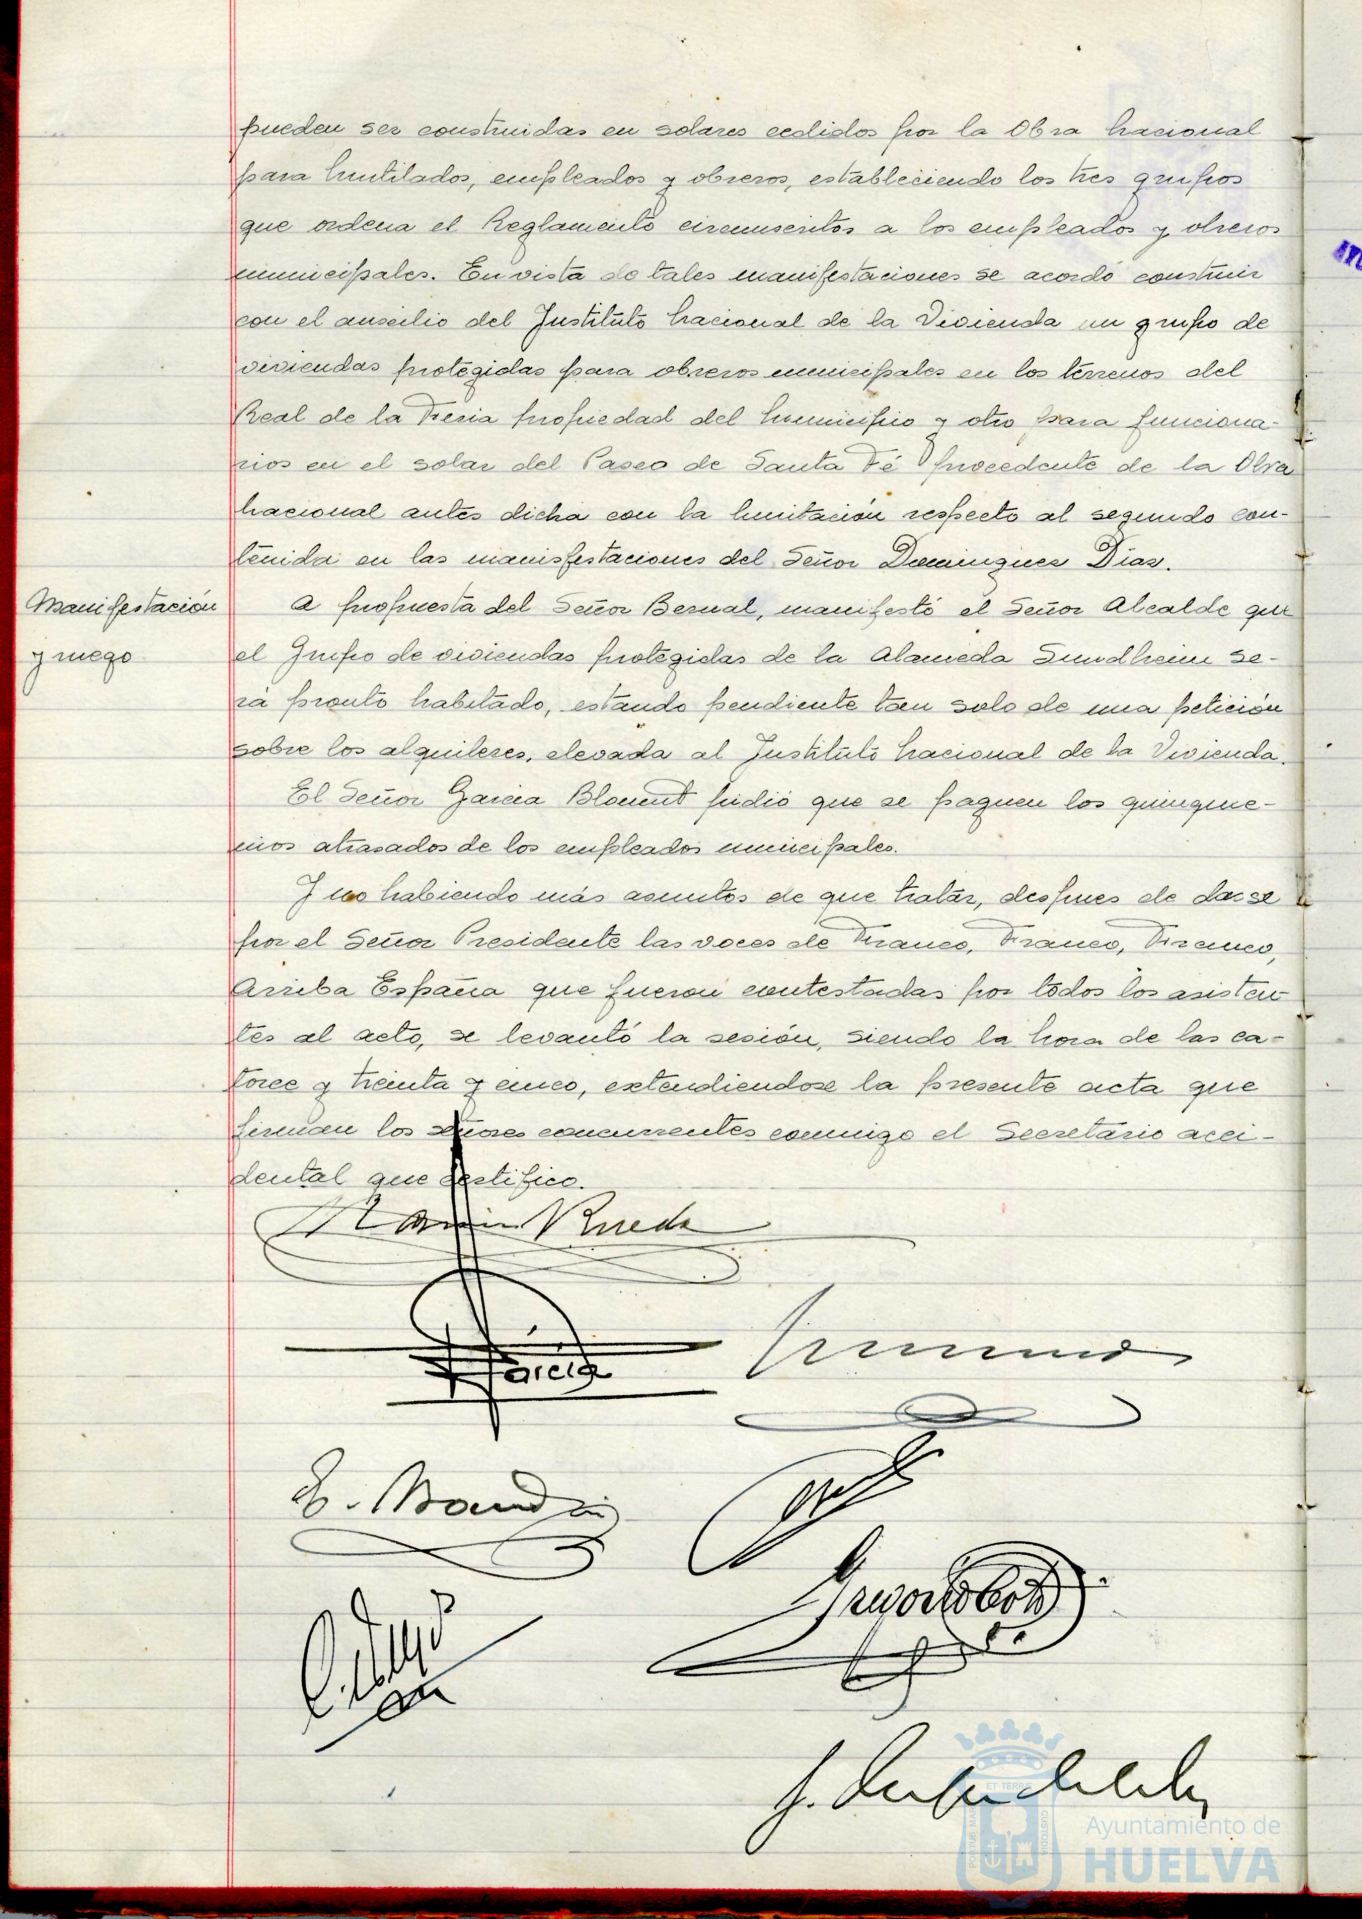 pueden ser construidas en solares cedidos por la Obra Nacional
para Mutilados, empleados y obreros, estableciendo los tres grupos
que ordena el Reglamento circunscritos a los empleados y obreros
municipales. En vista de tales manifestaciones se acordó construir
con el auxilio del Instituto Nacional de la Vivienda un grupo de
viviendas protegidas para obreros municipales en los terrenos del
Real de la Feria propiedad del Municipio y otro para funciona-
rios en el solar del Paseo de Santa Fé procedente de la Obra
Nacional antes dicha con la limitación respecto al segundo con-
tenida en las manisfestaciones del Señor Dominguez Díaz.
Manifestación
y ruego
A propuesta del Señor Bernal, manifestó el Señor Alcalde que
el Grupo de viviendas protegidas de la Alameda Sundheim se-
rá pronto habitado, estando pendiente tan solo de una petición
sobre los alquileres, elevada al Instituto Nacional de la Vivienda.
El Señor Garcia pidió que se paguen los quinque-
nios atrasados de los empleados municipales.
Y no habiendo más asuntos de que tratar, despues de darse
por el Señor Presidente las voces de Franco, Franco, Franco,
Arriba España que fueron contestadas por todos los asisten-
tes al acto, se levantó la sesión, siendo la hora de las ca-
torce y treinta y cinco, extendiendose la presente acta que
firman los señores concurrentes conmigo el Secretario acci-
dental que certifico.
Rueda
García
Gregorio
ET TERRE
PORTUS MARIS
CUSTODIA
Ayuntamiento de
HUELVA